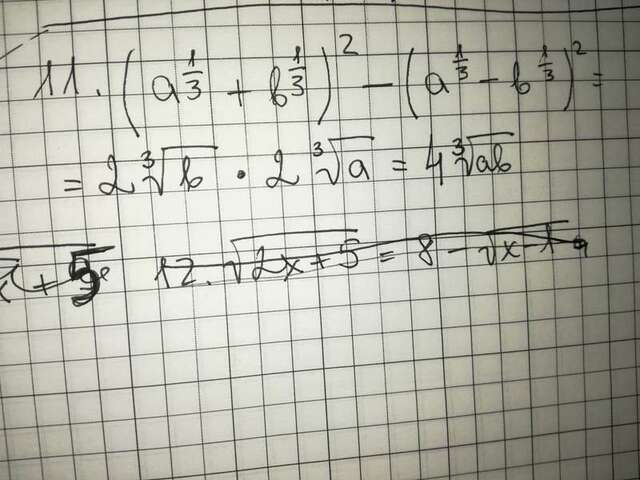 11. (a^{1/3} + b^{1/3})^2 − (a^{1/3} − b^{1/3})^2 =
= 2∛b · 2∛a = 4∛ab
12. √2x+5 = 8 − √x−1